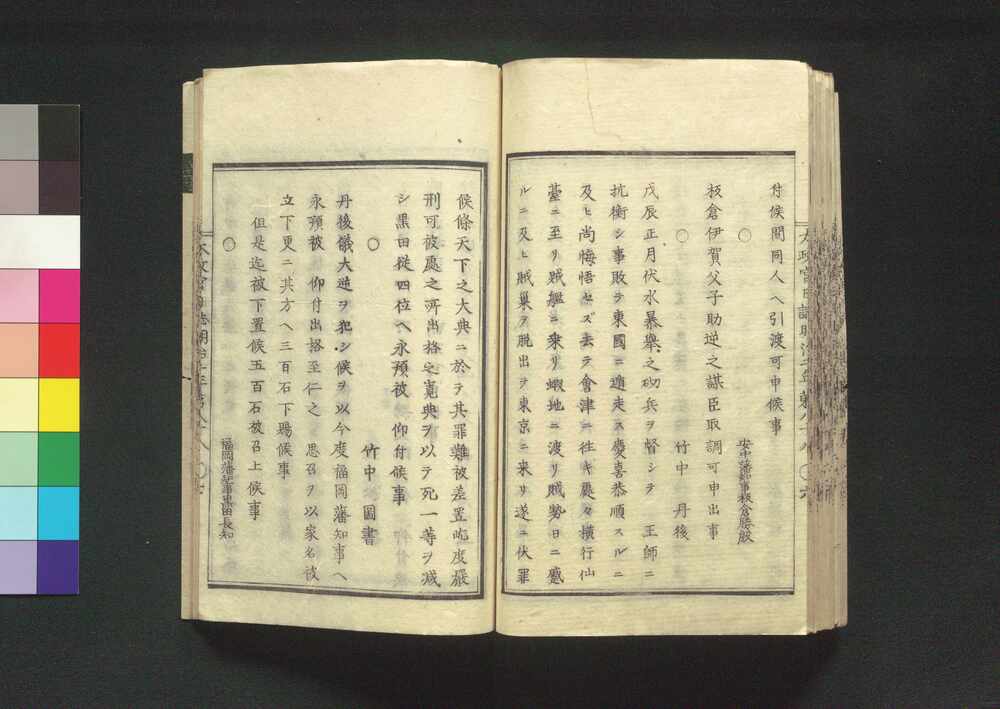 付候間同人ヘ引渡可申候事
○
安中藩知事板倉勝殷
板倉伊賀父子助逆之謀臣取調可申出事
○
竹中 丹後
戊辰正月伏水暴擧之砌兵ヲ督シヲ 王師ニ
抗衡シ事敗ラ東國ニ遁走ス慶喜恭順スルニ
及ヒ尚悔悟セズ去ラ會津ニ往キ處々横行仙
臺ニ至リ賊艦ニ乘リ蝦地ニ渡リ賊勢日ニ蹙
ルニ及ヒ賊巢ヲ脱出ヲ東京ニ来リ遂ニ伏罪
候條天下之大典ニ於ラ其罪難被差置屹度嚴
刑可被處之所出格之寛典ヲ以テ死一等ヲ減
シ黒田從四位ヘ永預被 仰付候事
○
竹中 圖書
丹後儀大逆ヲ犯シ候ヲ以今度福岡藩知事ヘ
永預被 仰付出格至仁之 思召ヲ以家名被
立下更ニ其方ヘ三百石下賜候事
但是迄被下置候五百石被召上候事
○
福岡藩知事黒田長知